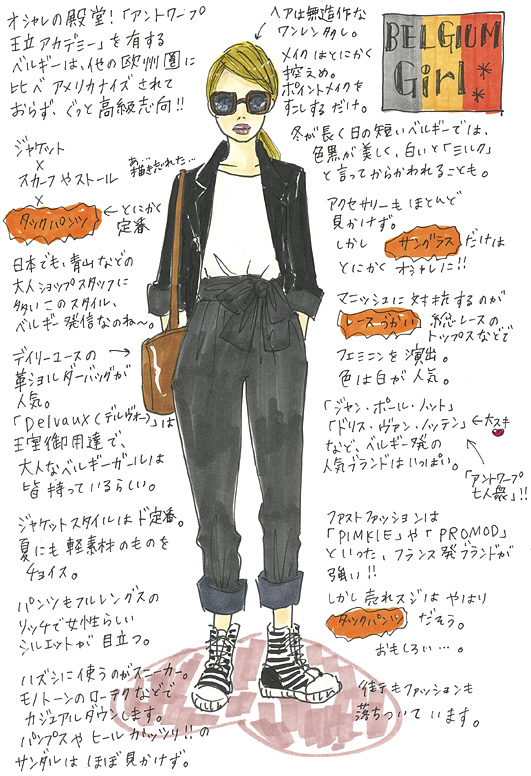 オシャレの殿堂!「アントワープ
王立アカデミー」を有する
ベルギーは、他の欧州圏に
比べアメリカナイズされて
おらず、ぐっと高級志向!!
ジャケット
×
スカーフやストール
×
タックパンツ
←とにかく
定番
あ…
描き忘れた…
日本でも、青山などの
大人ショップスタッフに
多いこのスタイル、
ベルギー発信なのね〜。
デイリーユースの
革ショルダーバッグが
人気。
「Delvaux(デルヴォー)」は
王室御用達で、
大人なベルギーガールは
皆持っているらしい。
ジャケットスタイルはド定番。
夏にも軽素材のものを
チョイス。
パンツもフルレングスの
リッチで女性らしい
シルエットが目立つ。
ハズシに使うのがスニーカー。
モノトーンのローテクなどで
カジュアルダウンします。
パンプスやヒールガッツリ!!の
サンダルはほぼ見かけず。
ヘアは無造作な
ワンレンタバし。
メイクはとにかく
控えめ。
ポイントメイクを
すこしするだけ。
BELGIUM
Girl
冬が長く日の短いベルギーでは、
色黒が美しく、白いと「ミルク」
と言ってからかわれることも。
アクセサリーもほとんど
見かけず。
しかし サングラス だけは
とにかくオシャレに!!
マニッシュに対抗するのが
レースづかい 総レースの
トップスなどで
フェミニンを演出。
色は白が人気。
「ジャン・ポール・ノット」
「ドリス・ヴァン・ノッテン」
←大スキ
など、ベルギー発の
人気ブランドはいっぱい。
「アントワープ
七人衆」!!
ファストファッションは
「PIMKIE」や「PROMOD」
といった、フランス発ブランドが
強い!!
しかし売れスジはやはり
タックパンツ だそう。
おもしろい…。
街もファッションも
落ちついています。